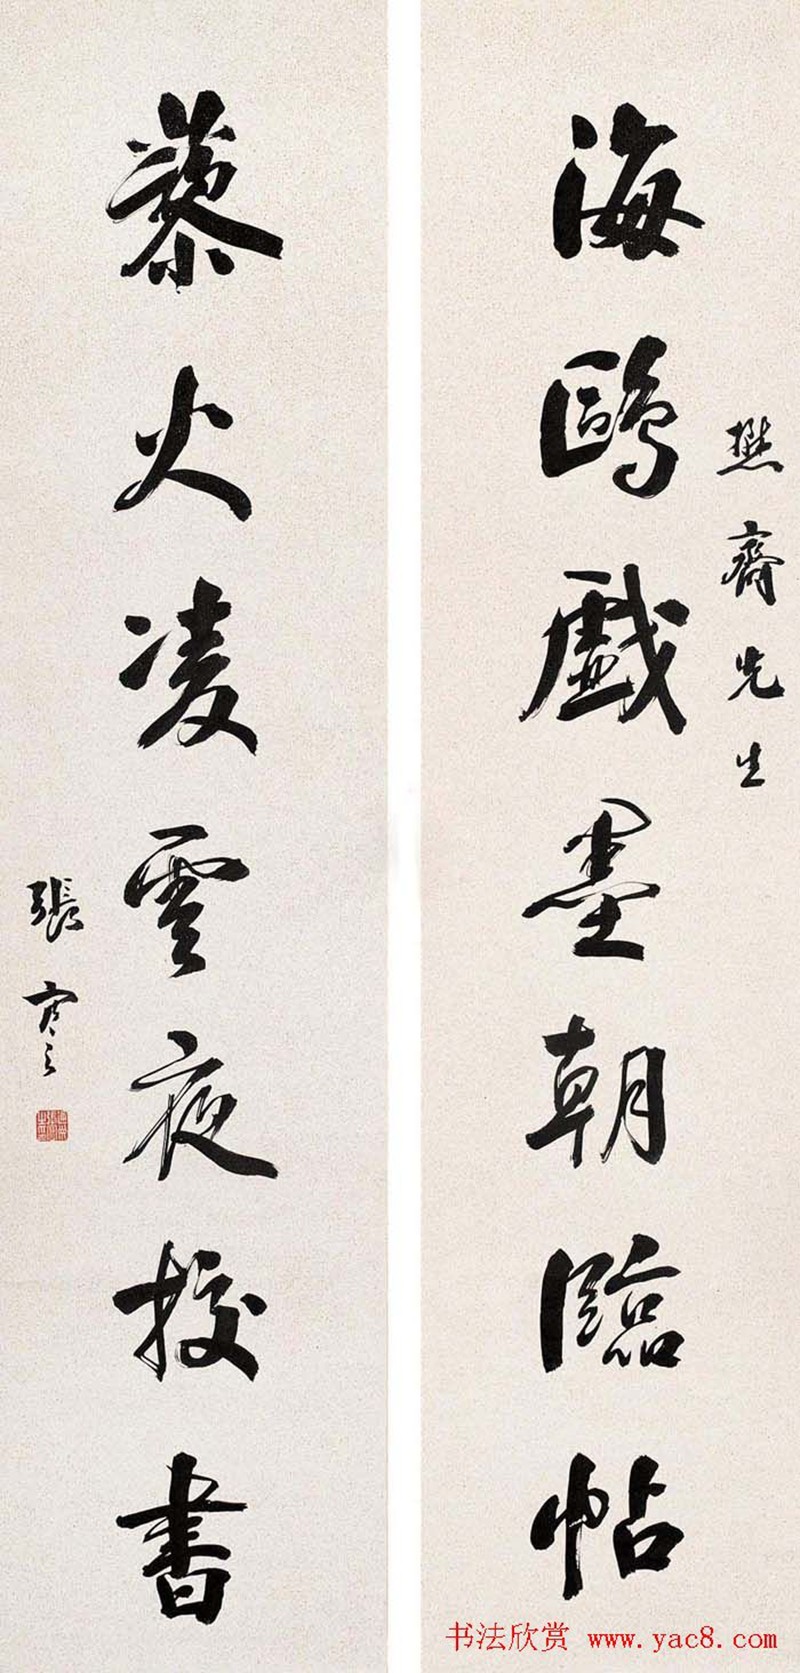 齋先生
海鷗戲墨朝臨帖
藜火凌雲夜校書
張謇
书法欣赏 www.yac8.com